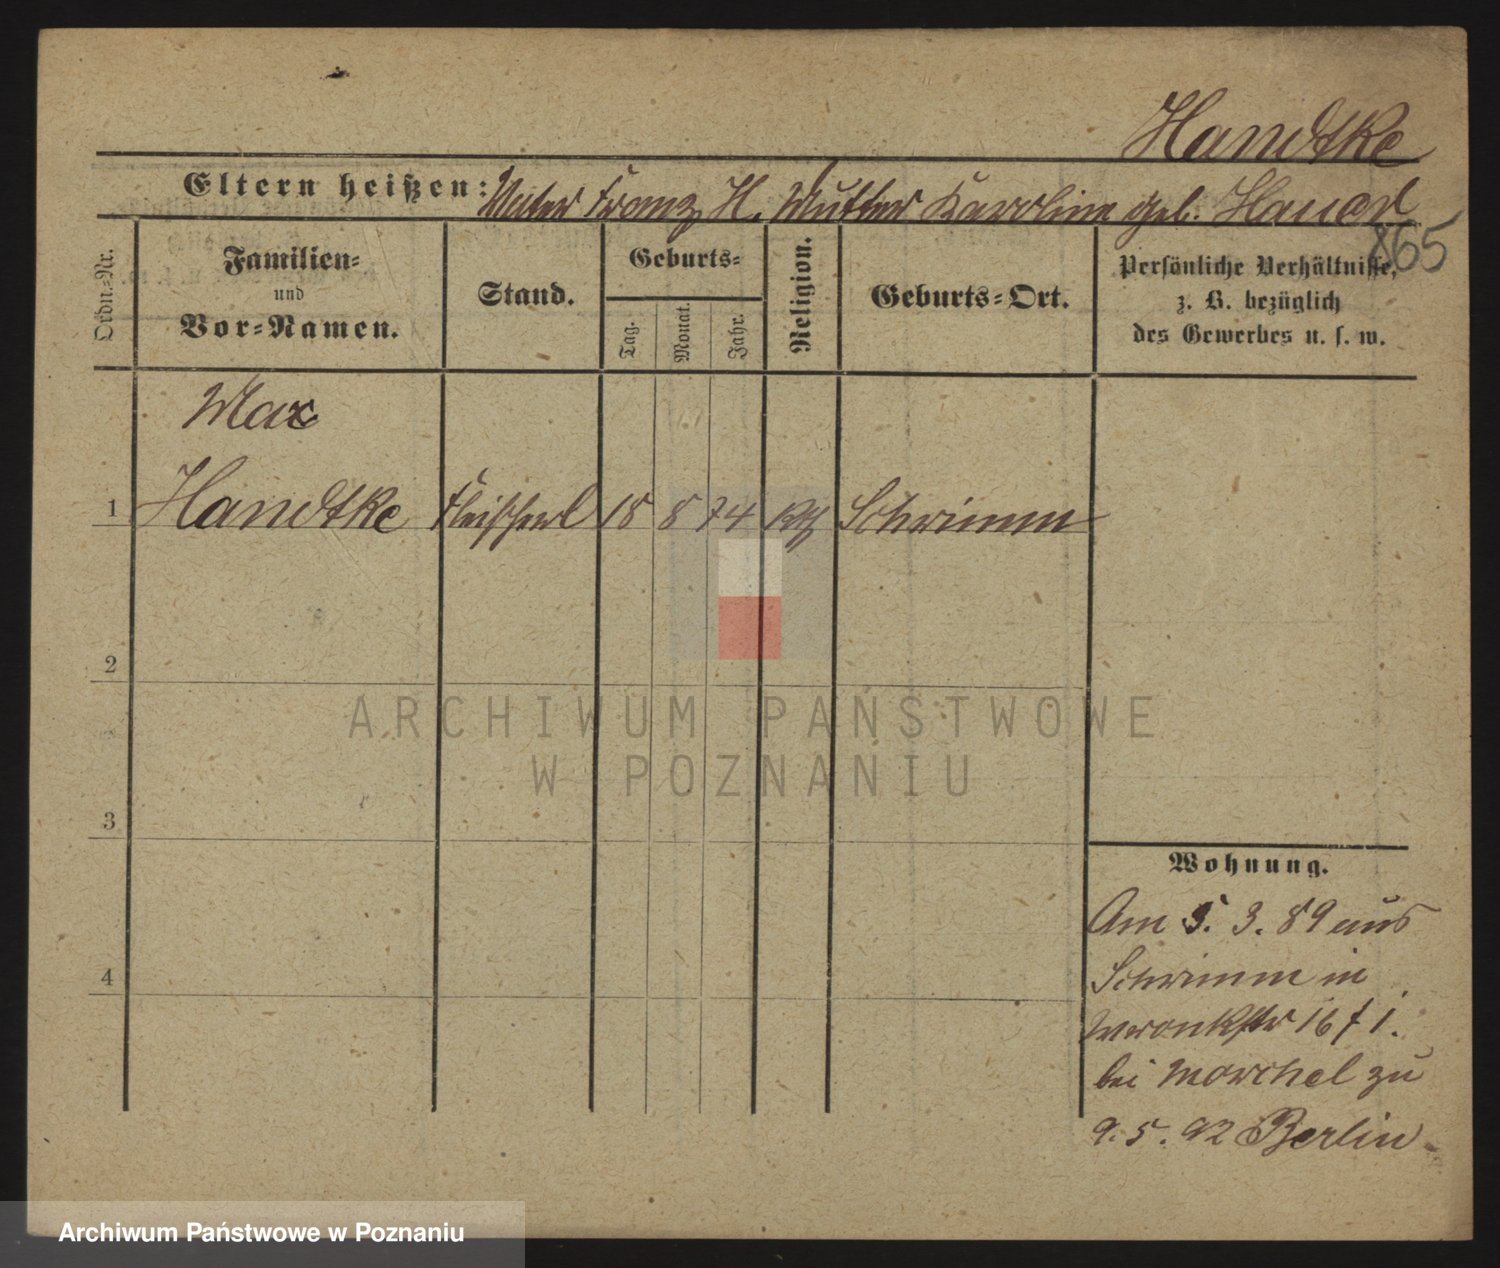 Handtke
Eltern heißen: Vater Franz H. Mutter Karoline geb. Hauer
865
Ordn.-Nr.
Familien-
und
Vor-Namen.
Stand.
Geburts-
Tag.
Monat.
Jahr.
Religion.
Geburts-Ort.
Persönliche Verhältnisse,
z. B. bezüglich
des Gewerbes u. s. w.
Max
1 Handtke Fleischerl 18 8 74 kth Schrimm
2
ARCHIWUM PAŃSTWOWE
W POZNANIU
3
4
Wohnung.
Am 5. 3. 89 aus
Schrimm in
Wronkstr 16 I.
bei Morchel zu
9. 5. 92 Berlin
Archiwum Państwowe w Poznaniu